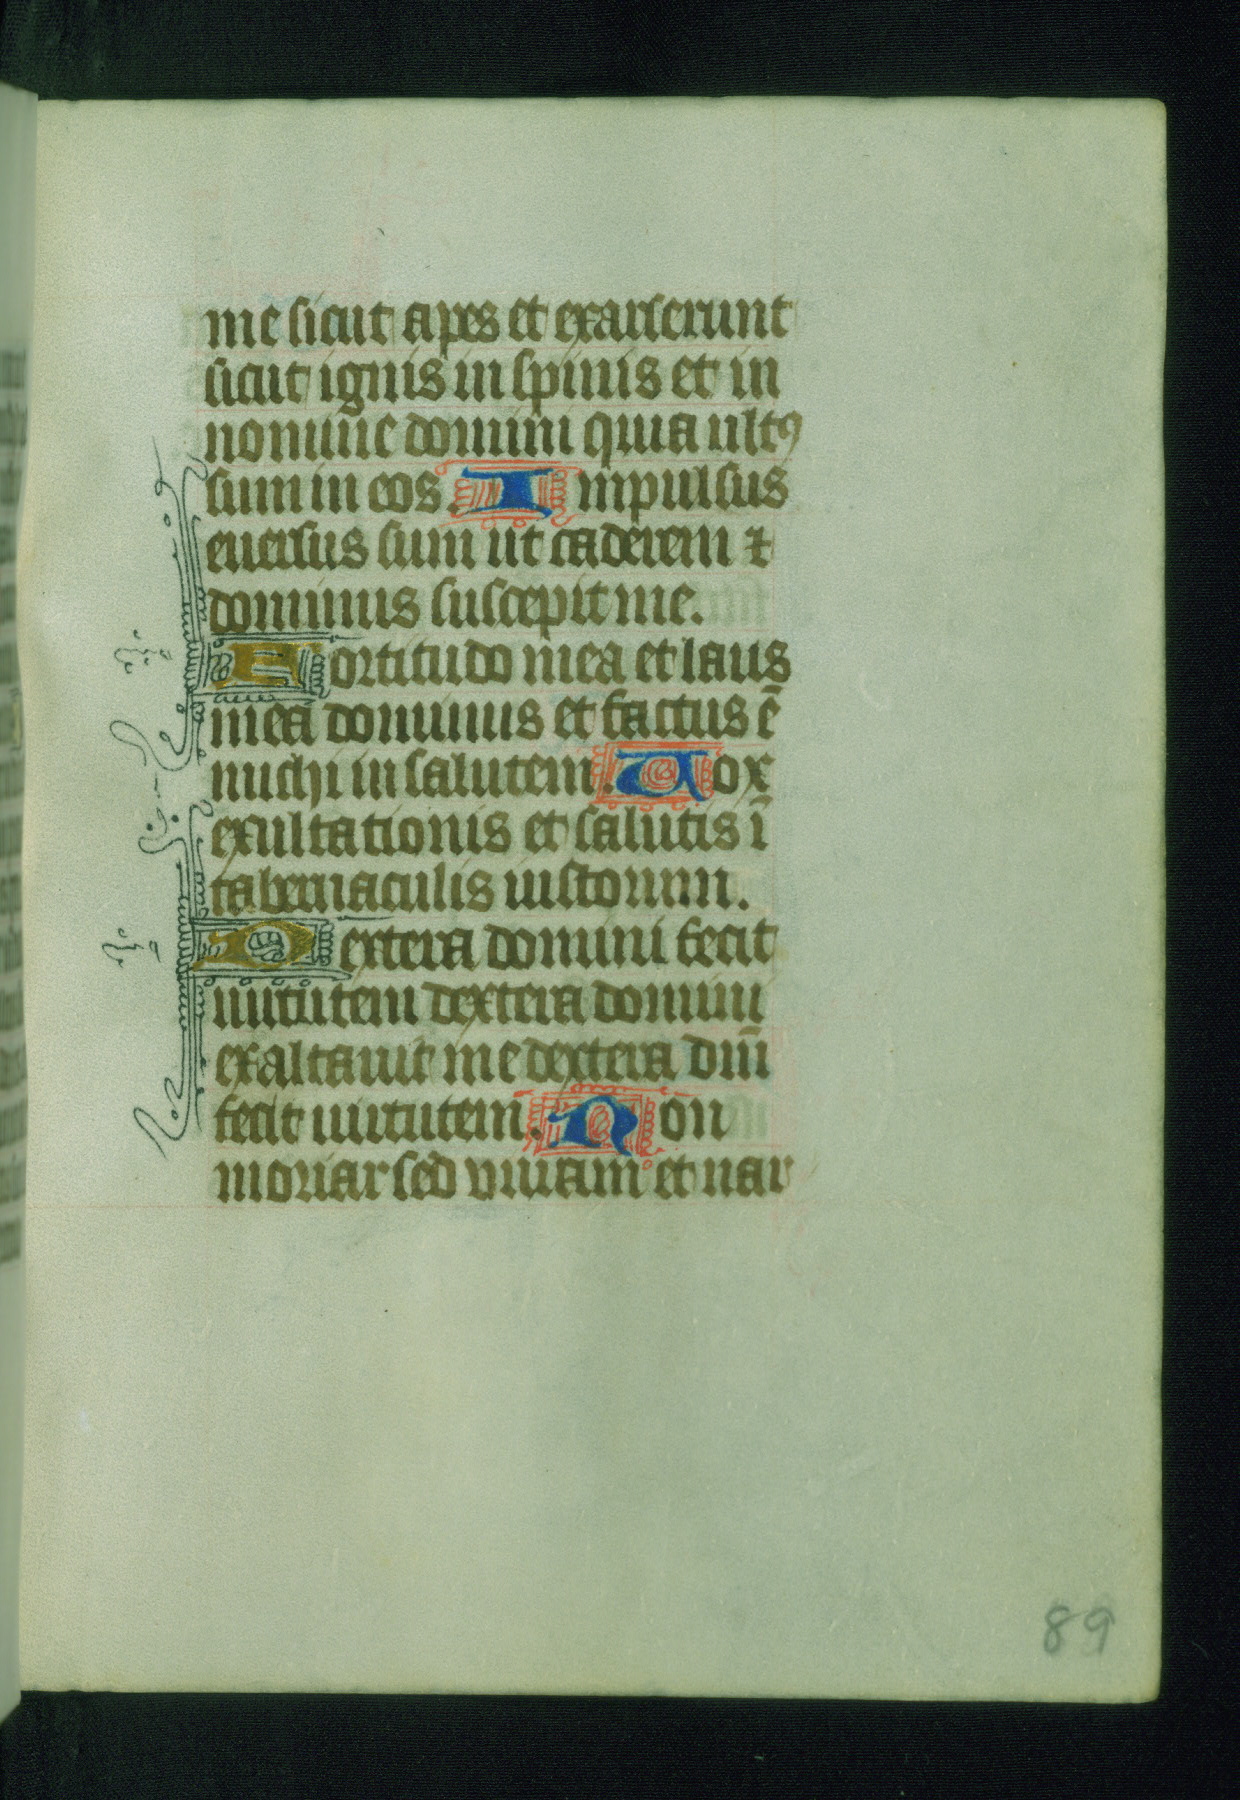 me sicut apes et exarserunt
sicut ignis in spinis et in
nomine domini quia ultꝰ
sum in eos. Impulsus
euersus sum ut caderem ⁊
dominus suscepit me.
Fortitudo mea et laus
mea dominus et factus ē
michi in salutem. Vox
exultationis et salutis ī
tabernaculis iustorum.
Dextera domini fecit
uirtutem dextera domini
exaltauit me dextera dnī
fecit uirtutem. Non
moriar sed viuam et nar
89